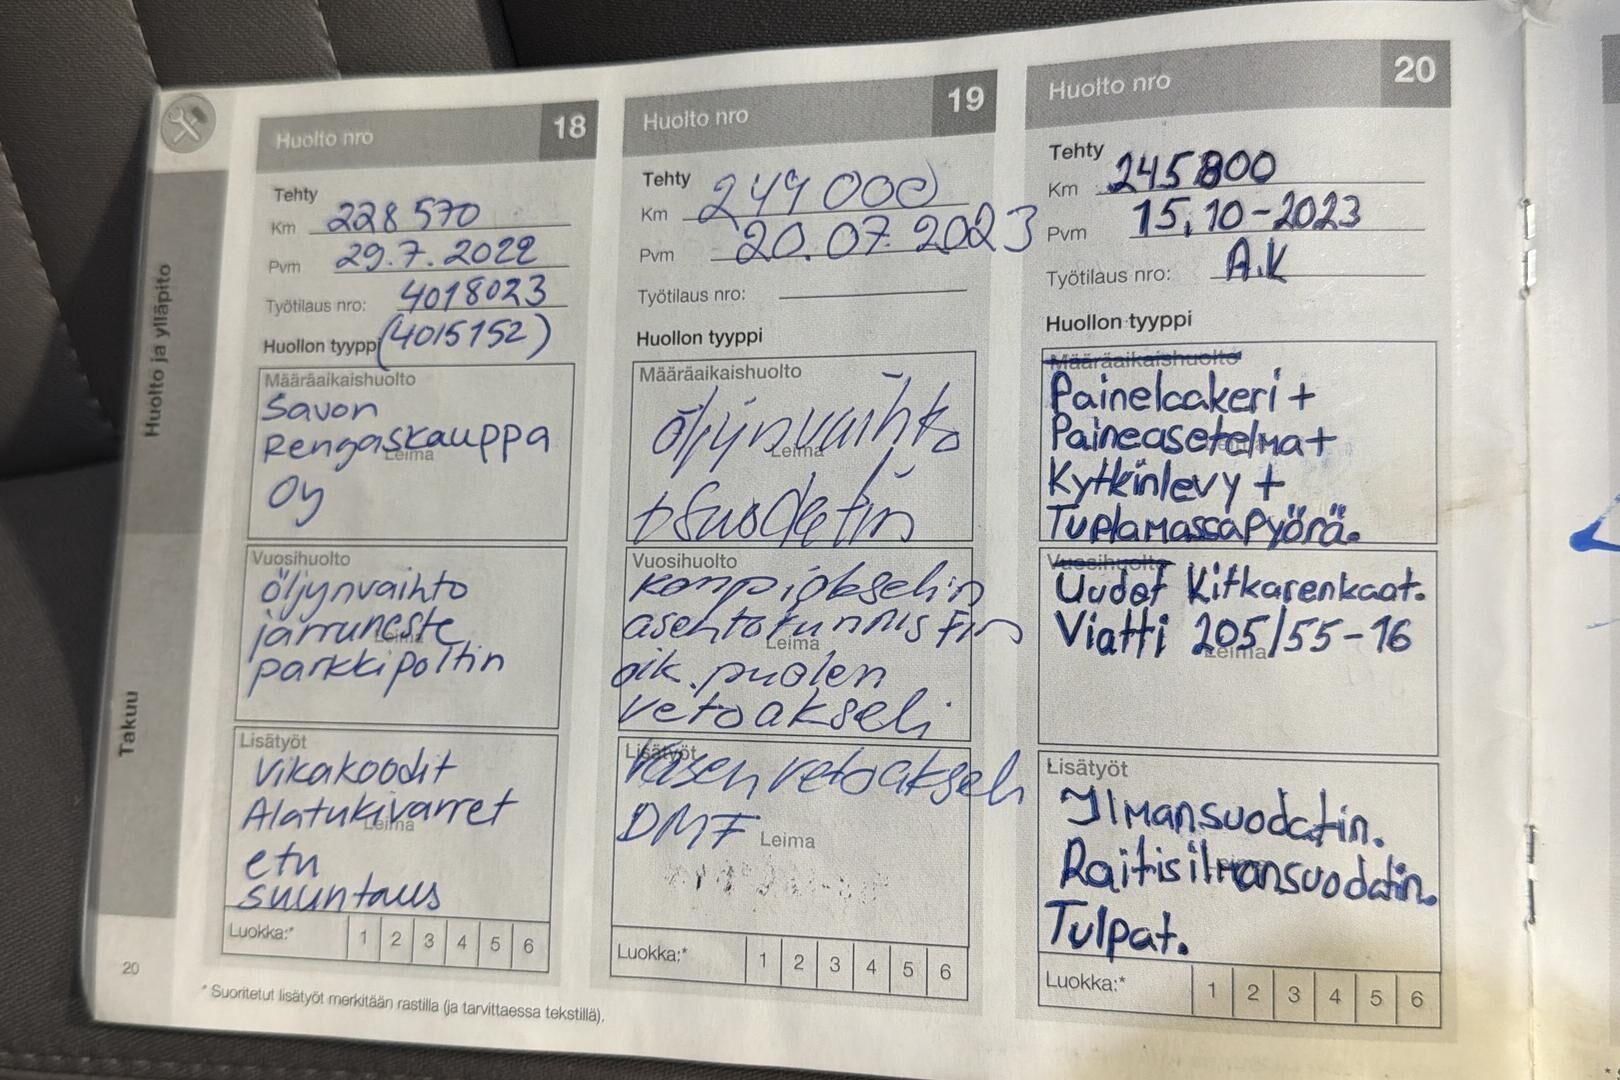 Huolto ja ylläpito
Takuu
Huolto nro 18
Tehty
Km 228 570
Pvm 29.7.2022
Työtilaus nro: 4018023
Huollon tyyppi (4015152)
Määräaikaishuolto
Savon
Rengaskauppa
Leima
Oy
Vuosihuolto
öljynvaihto
jarruneste
Leima
parkkipoltin
Lisätyöt
Vikakoodit
Alatukivarret
Leima
etu
suuntaus
Luokka:* 1 2 3 4 5 6
20
* Suoritetut lisätyöt merkitään rastilla (ja tarvittaessa tekstillä).
Huolto nro 19
Tehty
Km 244 000
Pvm 20.07.2023
Työtilaus nro:
Huollon tyyppi
Määräaikaishuolto
öljynvaihto
Leima
+ suodatin
Vuosihuolto
asentotunnistin
Leima
oik. puolen
vetoakseli
Lisätyöt
Vasen vetoakseli
DMF
Leima
Luokka:* 1 2 3 4 5 6
Huolto nro 20
Tehty
Km 245 800
Pvm 15.10-2023
Työtilaus nro: A.K
Huollon tyyppi
Määräaikaishuolto
Painelaakeri +
Paineasetelma +
Kytkinlevy +
Tuplamassapyörä.
Vuosihuolto
Uudet Kitkarenkaat.
Viatti 205/55-16
Leima
Lisätyöt
Ilmansuodatin.
Raitisilmansuodatin.
Tulpat.
Luokka:* 1 2 3 4 5 6